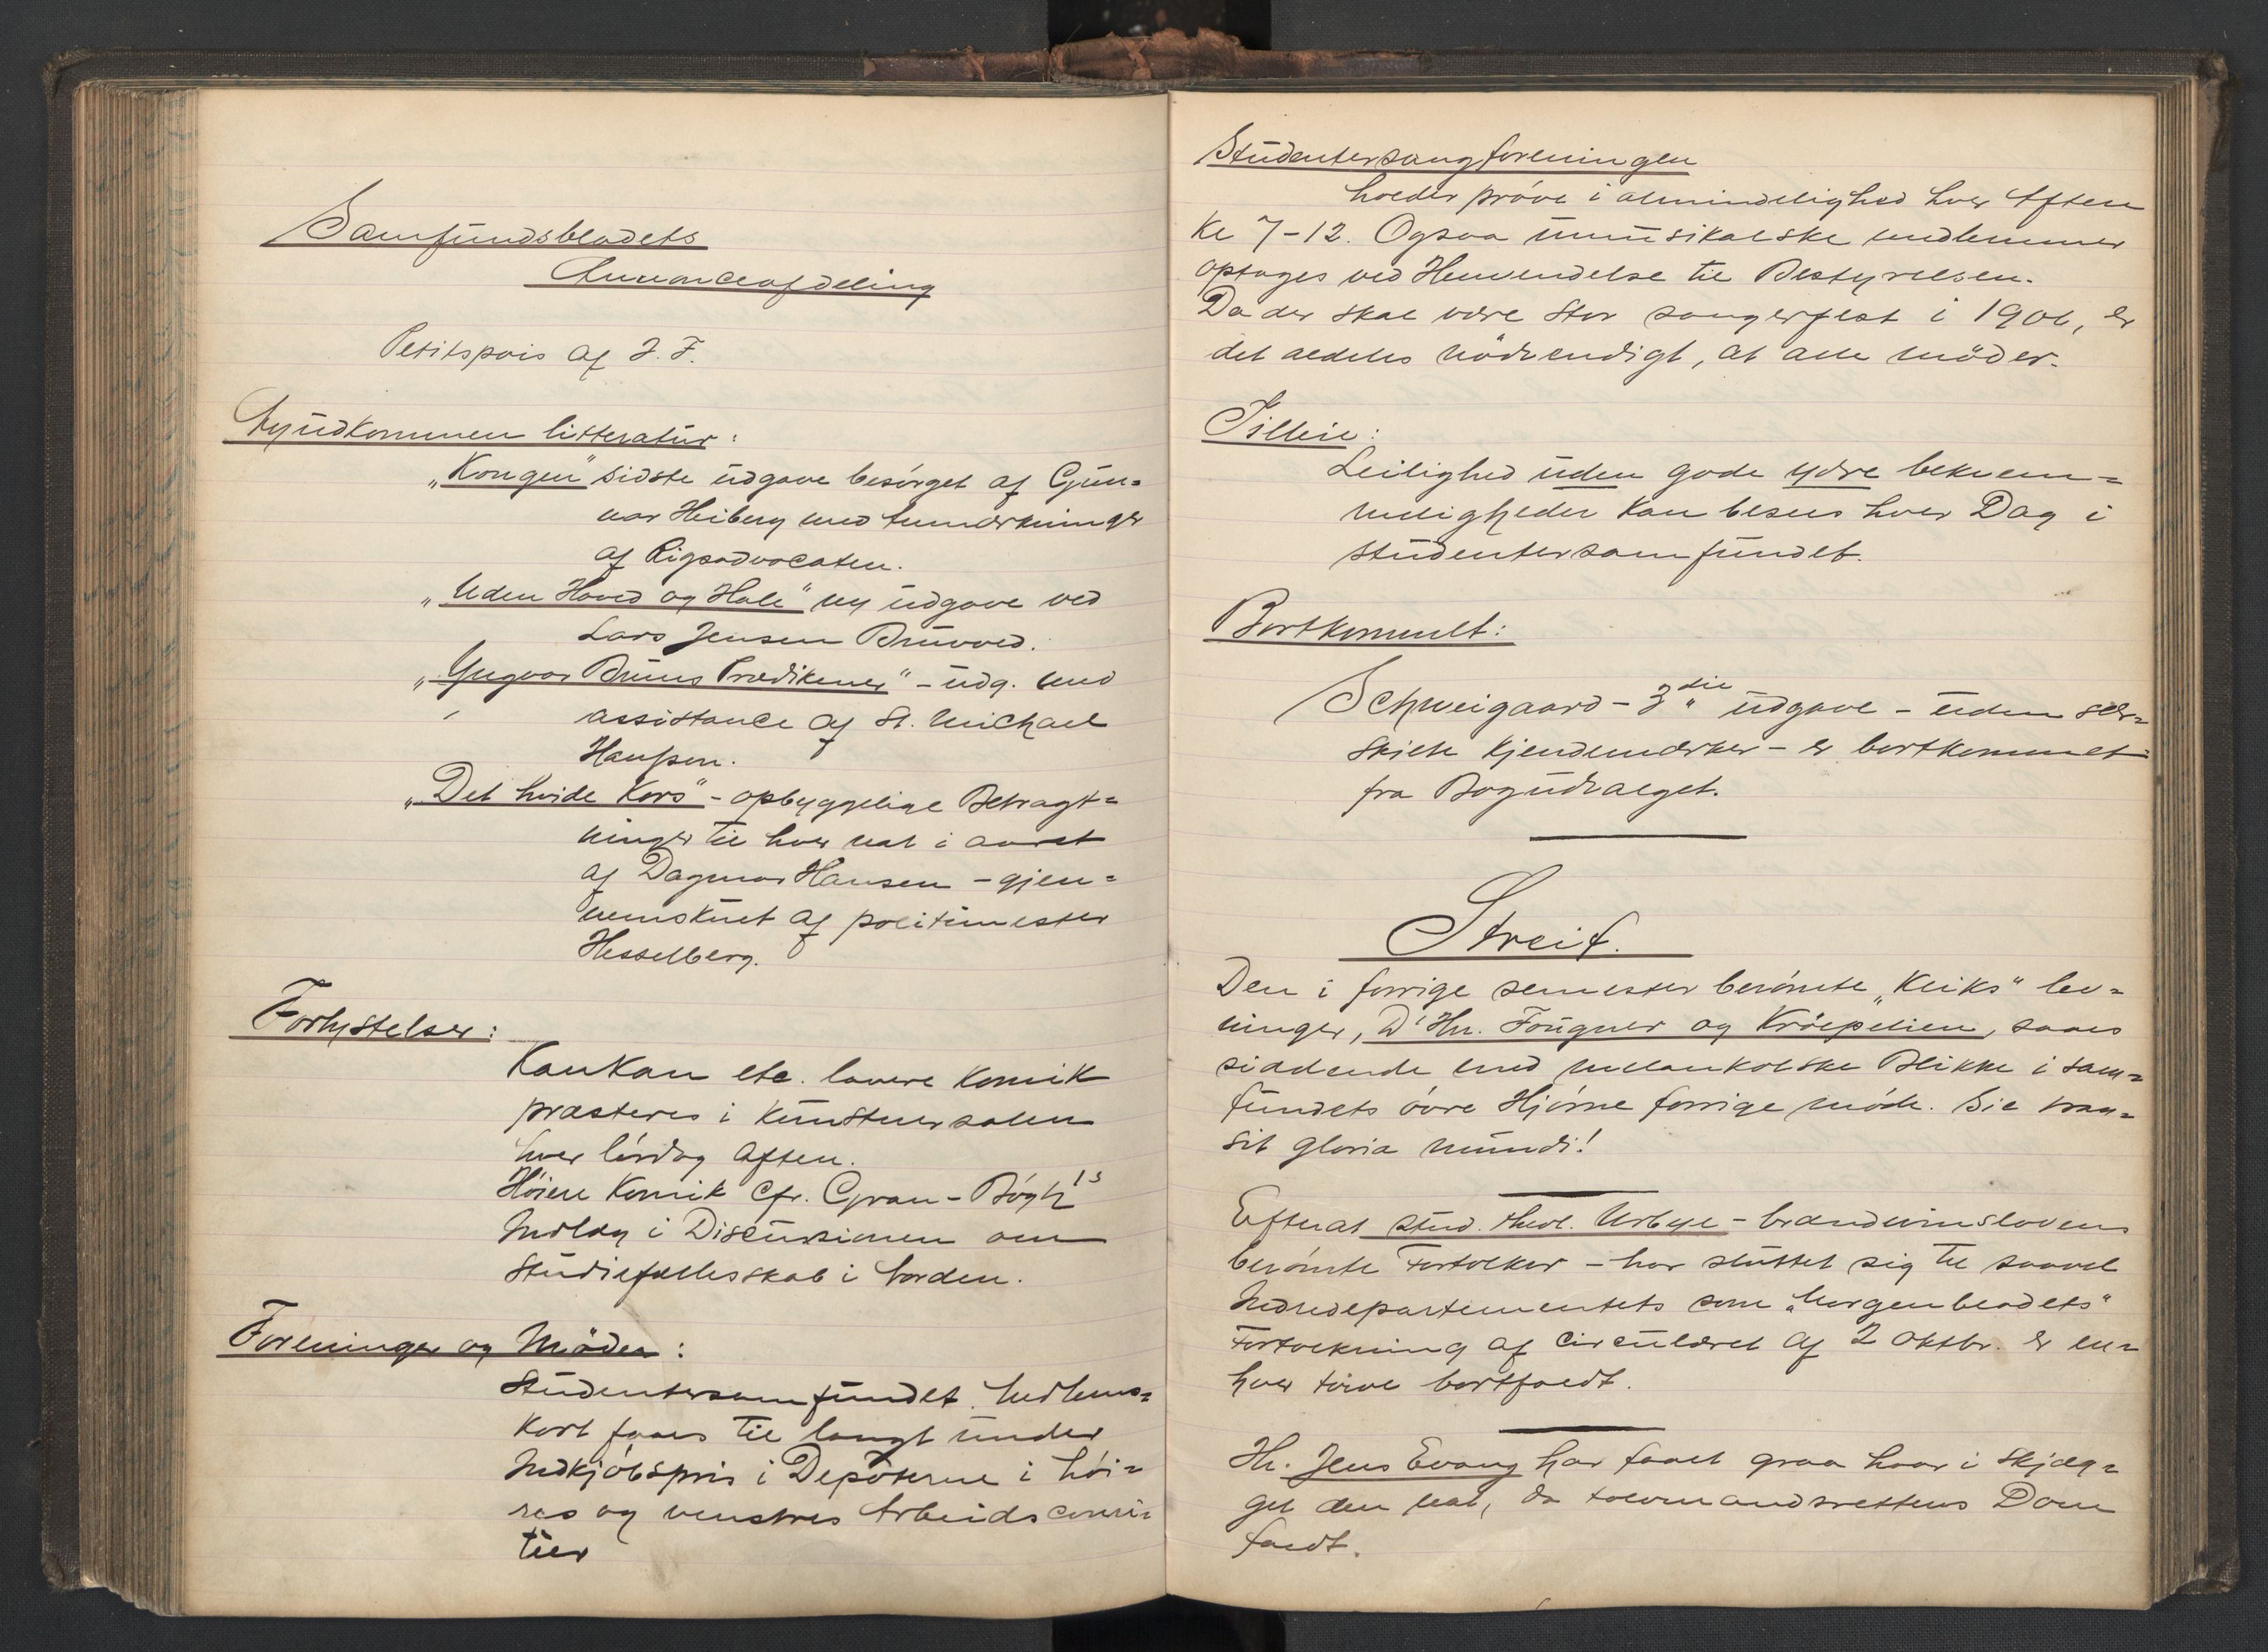 Samfundsbladets
Annonceafdeling
Petitspris af J. F.
Nyudkommen litteratur:
„Kongen" sidste udgave besørget af Gun=
nar Heiberg med Anmærkninger
af Rigsadvocaten.
„Uden Hoved og Hale" ny udgave ved
Lars Jensen
„Yngvar Bruns Prædikener" - udg. med
assistance af St. Michael
Hanssen.
„Det hvide Kors" - opbyggelige Betragt=
ninger til hver nat i aaret
af Dagmar Hansen - gjen=
nemskuet af politimester
Hesselberg.
Forlystelser:
KanKan etc. lavere Komik
præsteres i Kunstnersalen
hver lørdag Aften.
Høiere Komik cfr. Gran-Bøgh's
Indlæg i Discussionen om
Studiefællesskab i Norden.
Foreninger og Møder:
Studentersamfundet. Medlems=
Kort faaes til langt under
Indkjøbspris i Depoterne i høi=
res og venstres Arbeidscomi=
teer
Studentersangforeningen
holder prøve i almindelighed hver Aften
Kl 7-12. Ogsaa umusikalske medlemmer
optages ved Henvendelse til Bestyrelsen.
Da der skal være stor sangerfest i 1906, er
det aldeles nødvendigt, at alle møder.
Tilleie:
Leilighed uden gode ydre bekvem=
meligheder Kan besees hver Dag i
Studentersamfundet.
Bortkommet:
Schweigaard - 3die udgave - uden sær=
skilte Kjendemærker - er bortkommet
fra Bogudvalget.
Streif.
Den i forrige semester berømte „Keiks" lev=
ninger, D'Hrr. Fougner og Krøepelien, saaes
siddende med melankolske Blikke i Sam=
fundets øvre Hjørne forrige møde. Sic tran=
sit gloria mundi!
Efterat stud. theol. Urbye - brændevinslovens
berømte Fortolker - har sluttet sig til saavel
Indredepartementets som „Morgenbladets"
Fortolkning af Circulæret af 2 oktbr. er en=
hver tvivl bortfaldt.
Hr. Jens Evang har faaet graa haar i Skjæg=
get den nat, da tolvmandsrettens Dom
faldt.